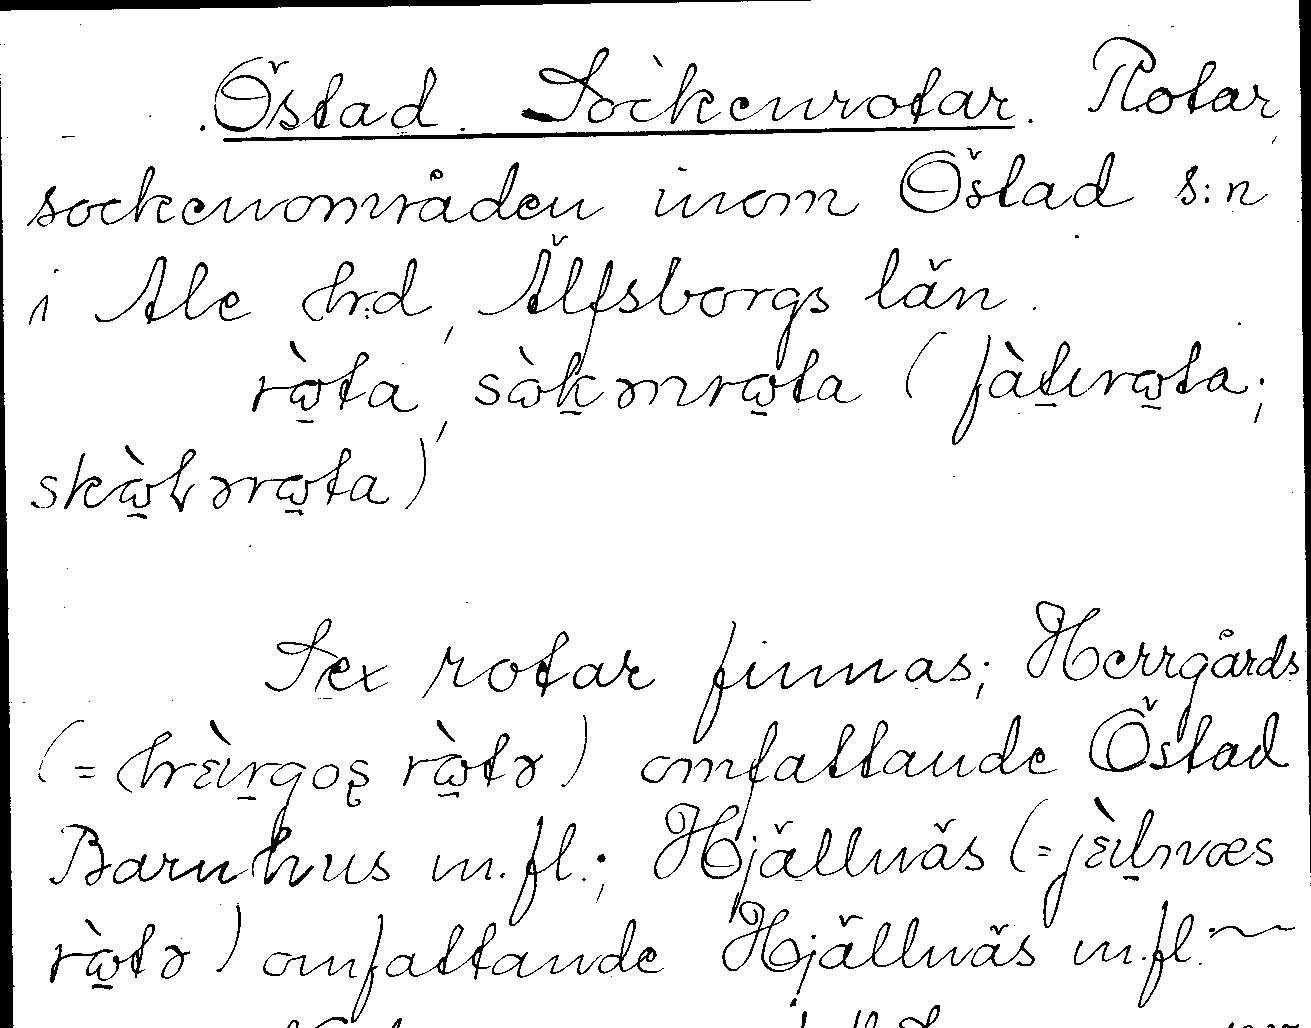 Östad. Sockenrotar. Rotar,
sockenområden inom Östad s:n
i Ale h:d, Älfsborgs län.
rὼ̲ta, sὼk̲ənrω̲ta (fàt̲ɩrω̲ta;
skὼ̲lərω̲ta)
Sex rotar finnas; Herrgårds
(= hrɛ̀ɩr̲goʂ rὼ̲tə) omfattande Östad
Barnhus m.fl.; Hjällnäs (= jɛ̀ɩl̲næs
rὼ̲tə) omfattande Hjällnäs m.fl.